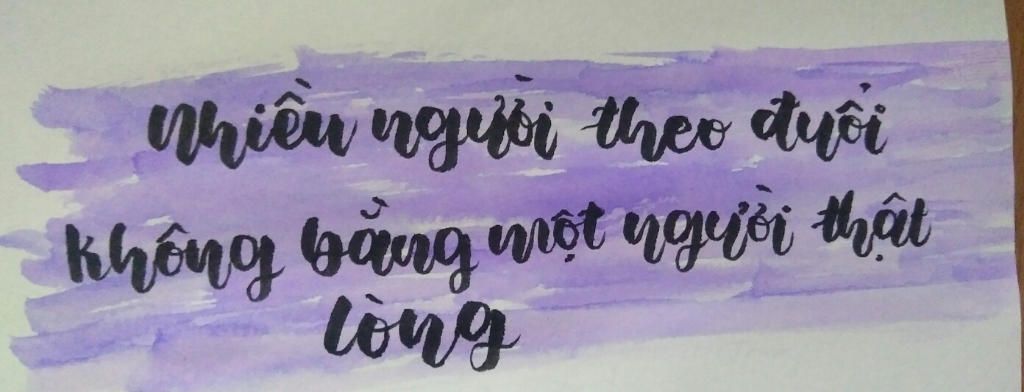 Nhiều người theo đuổi
không bằng một người thật
lòng